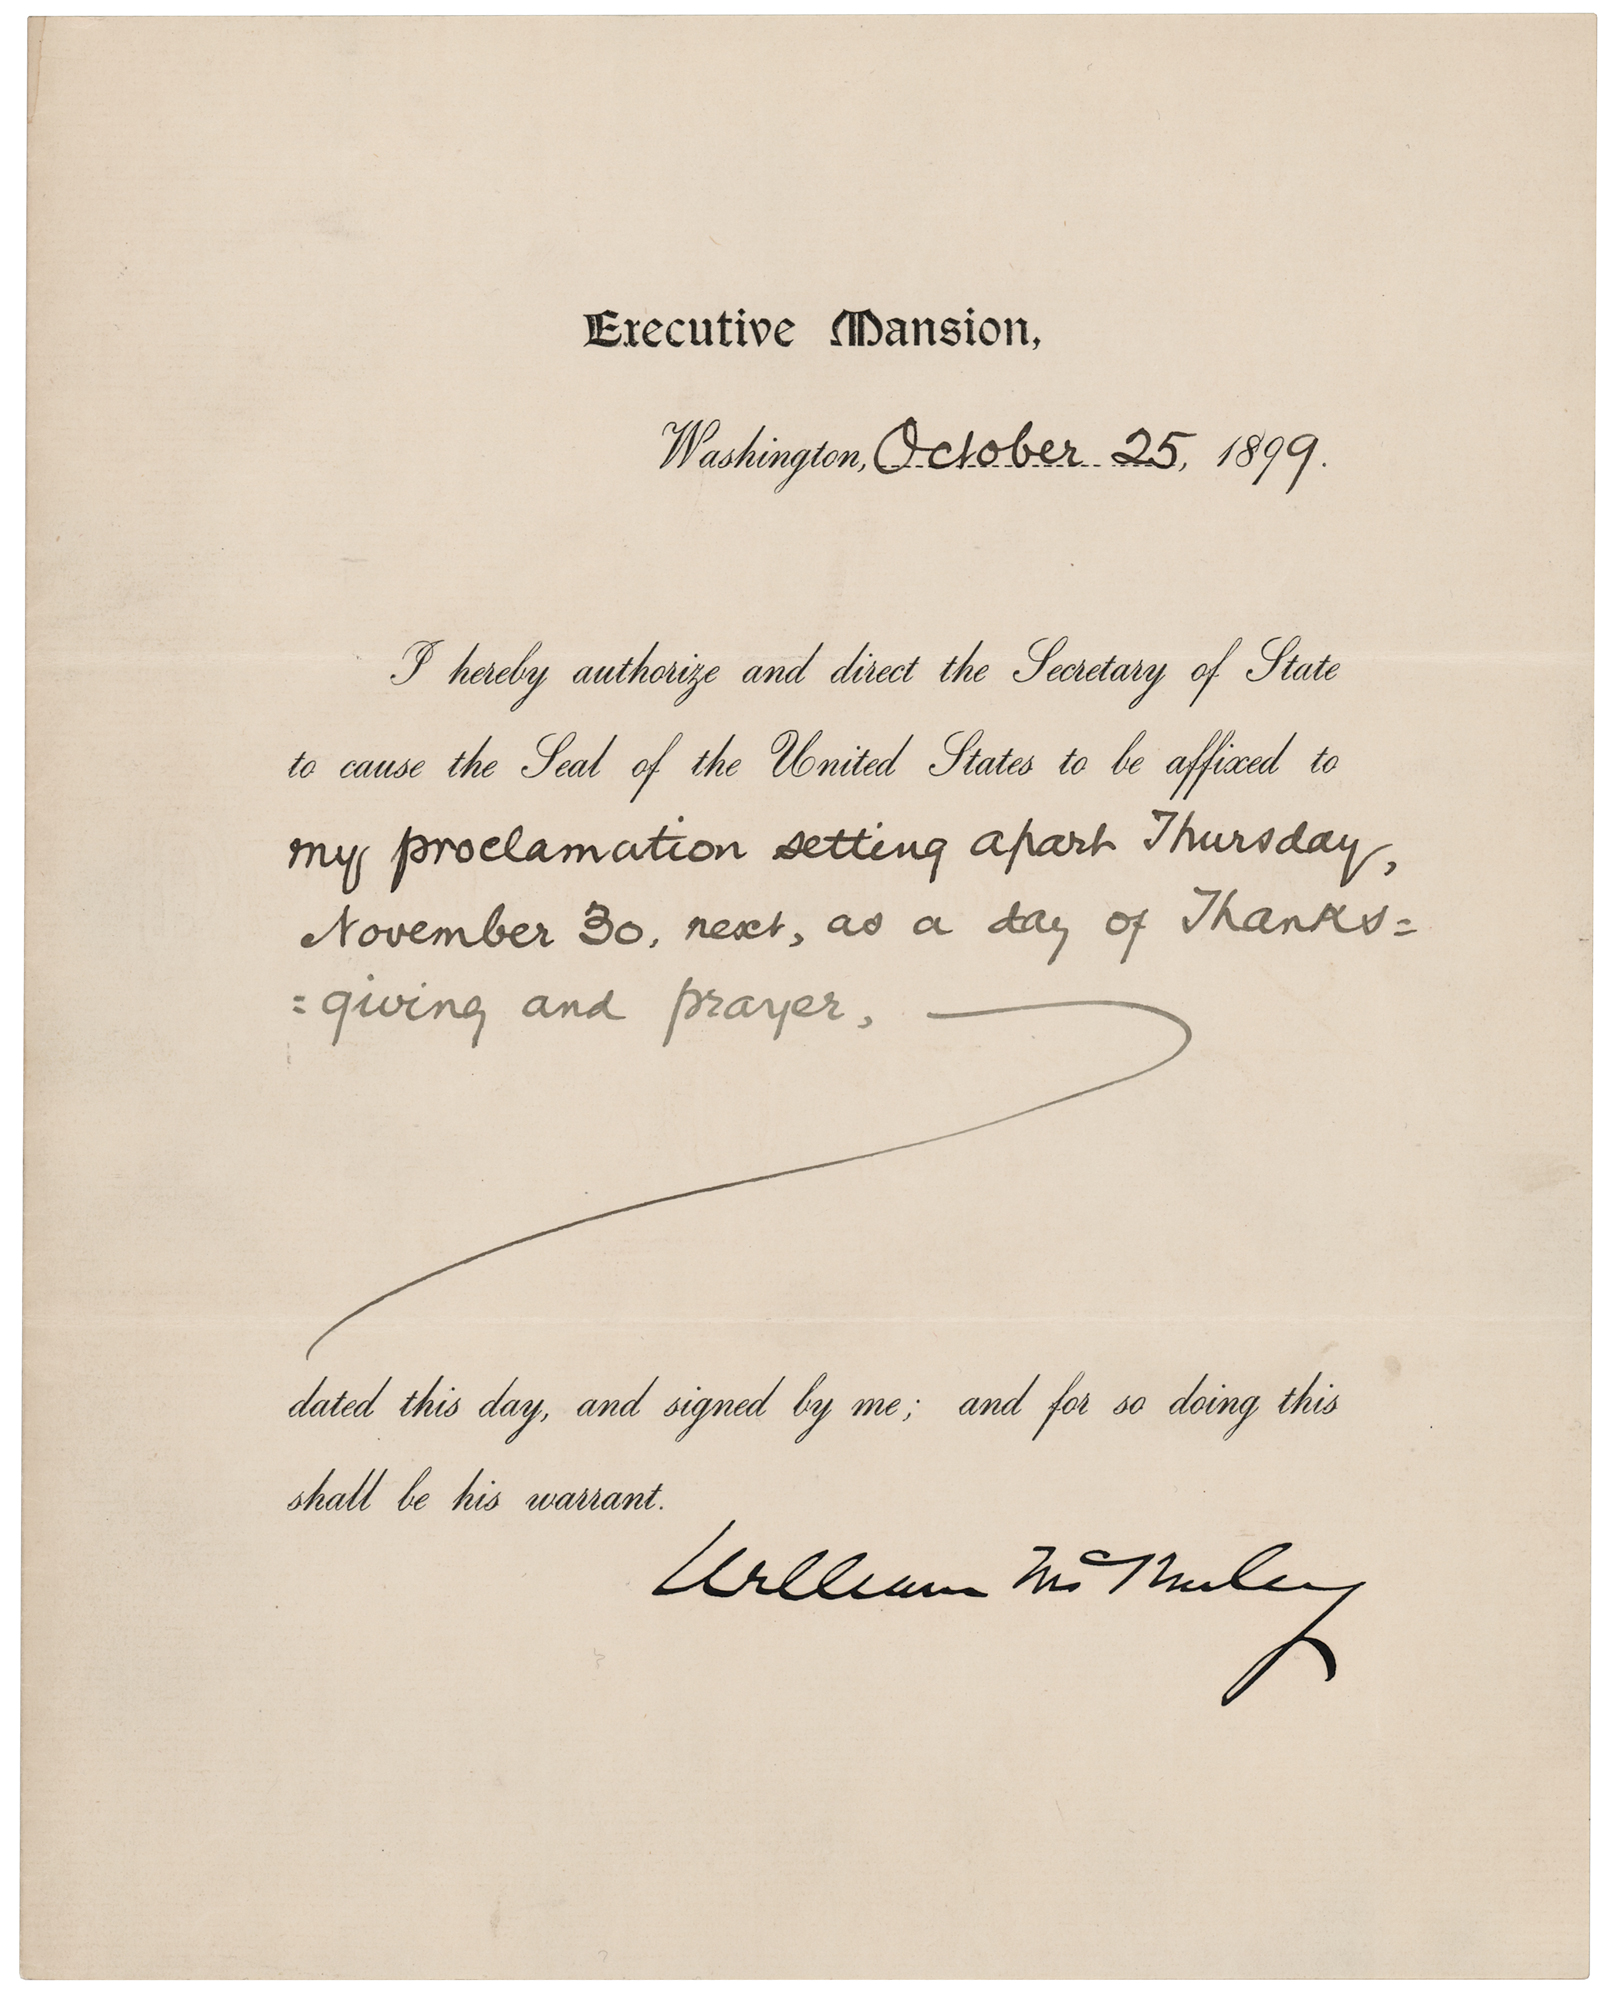 Executive Mansion,
Washington, October 25, 1899.
I hereby authorize and direct the Secretary of State
to cause the Seal of the United States to be affixed to
my proclamation setting apart Thursday,
November 30, next, as a day of Thanks=
=giving and prayer,
dated this day, and signed by me; and for so doing this
shall be his warrant.
William McKinley